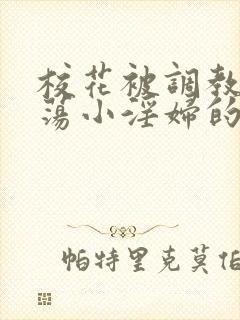 校花被調教
蕩小淫婦的
帕特里克莫伯